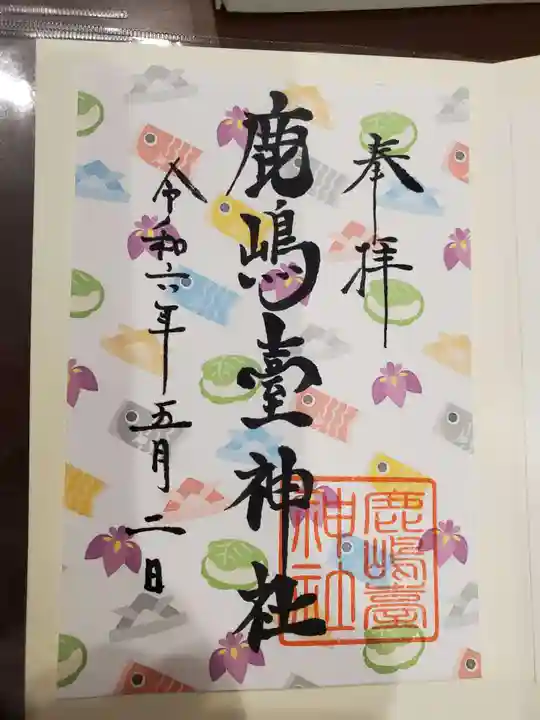 奉拝
鹿嶋臺神社
鹿嶋臺
神社
令和六年五月二日